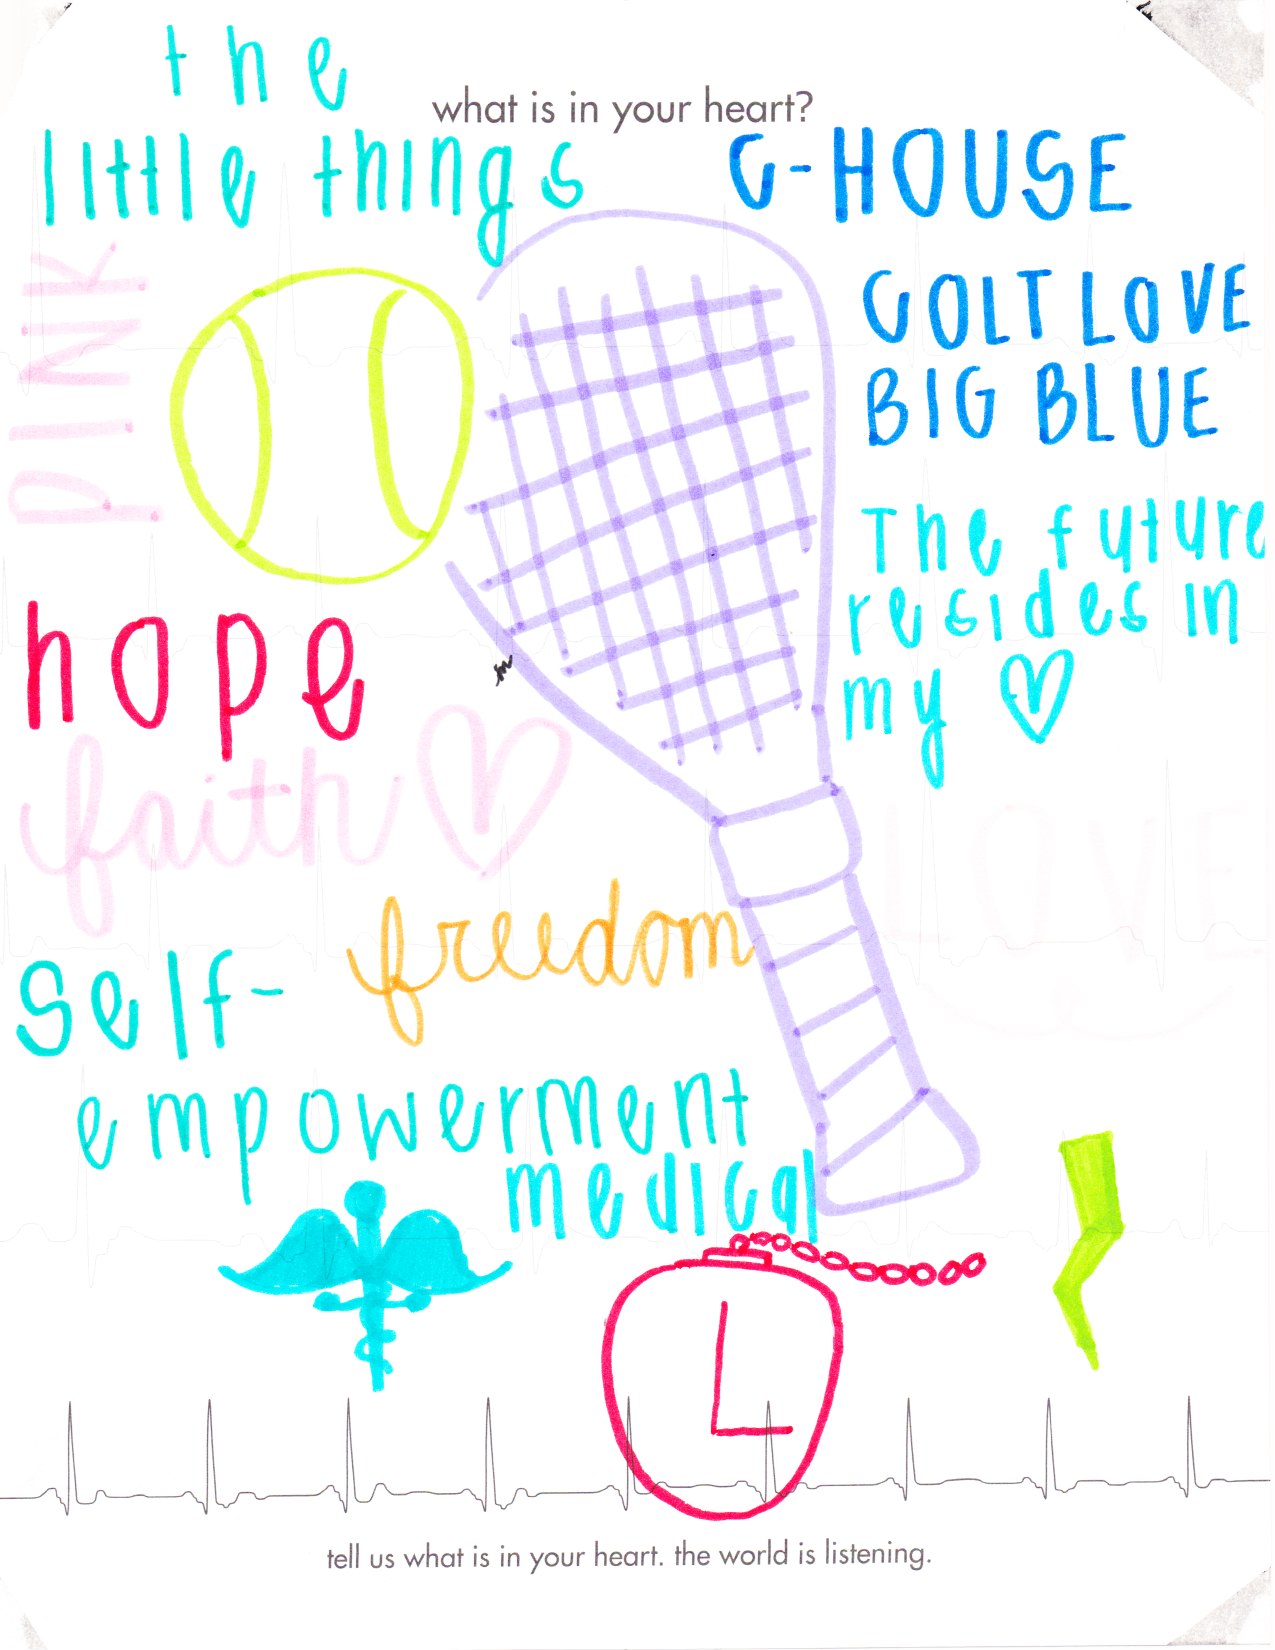 the
what is in your heart?
little things
C-HOUSE
PINK
COLT LOVE
BIG BLUE
The future
resides in
my
hope
faith
LOVE
freedom
self-
empowerment
medical
L
tell us what is in your heart. the world is listening.